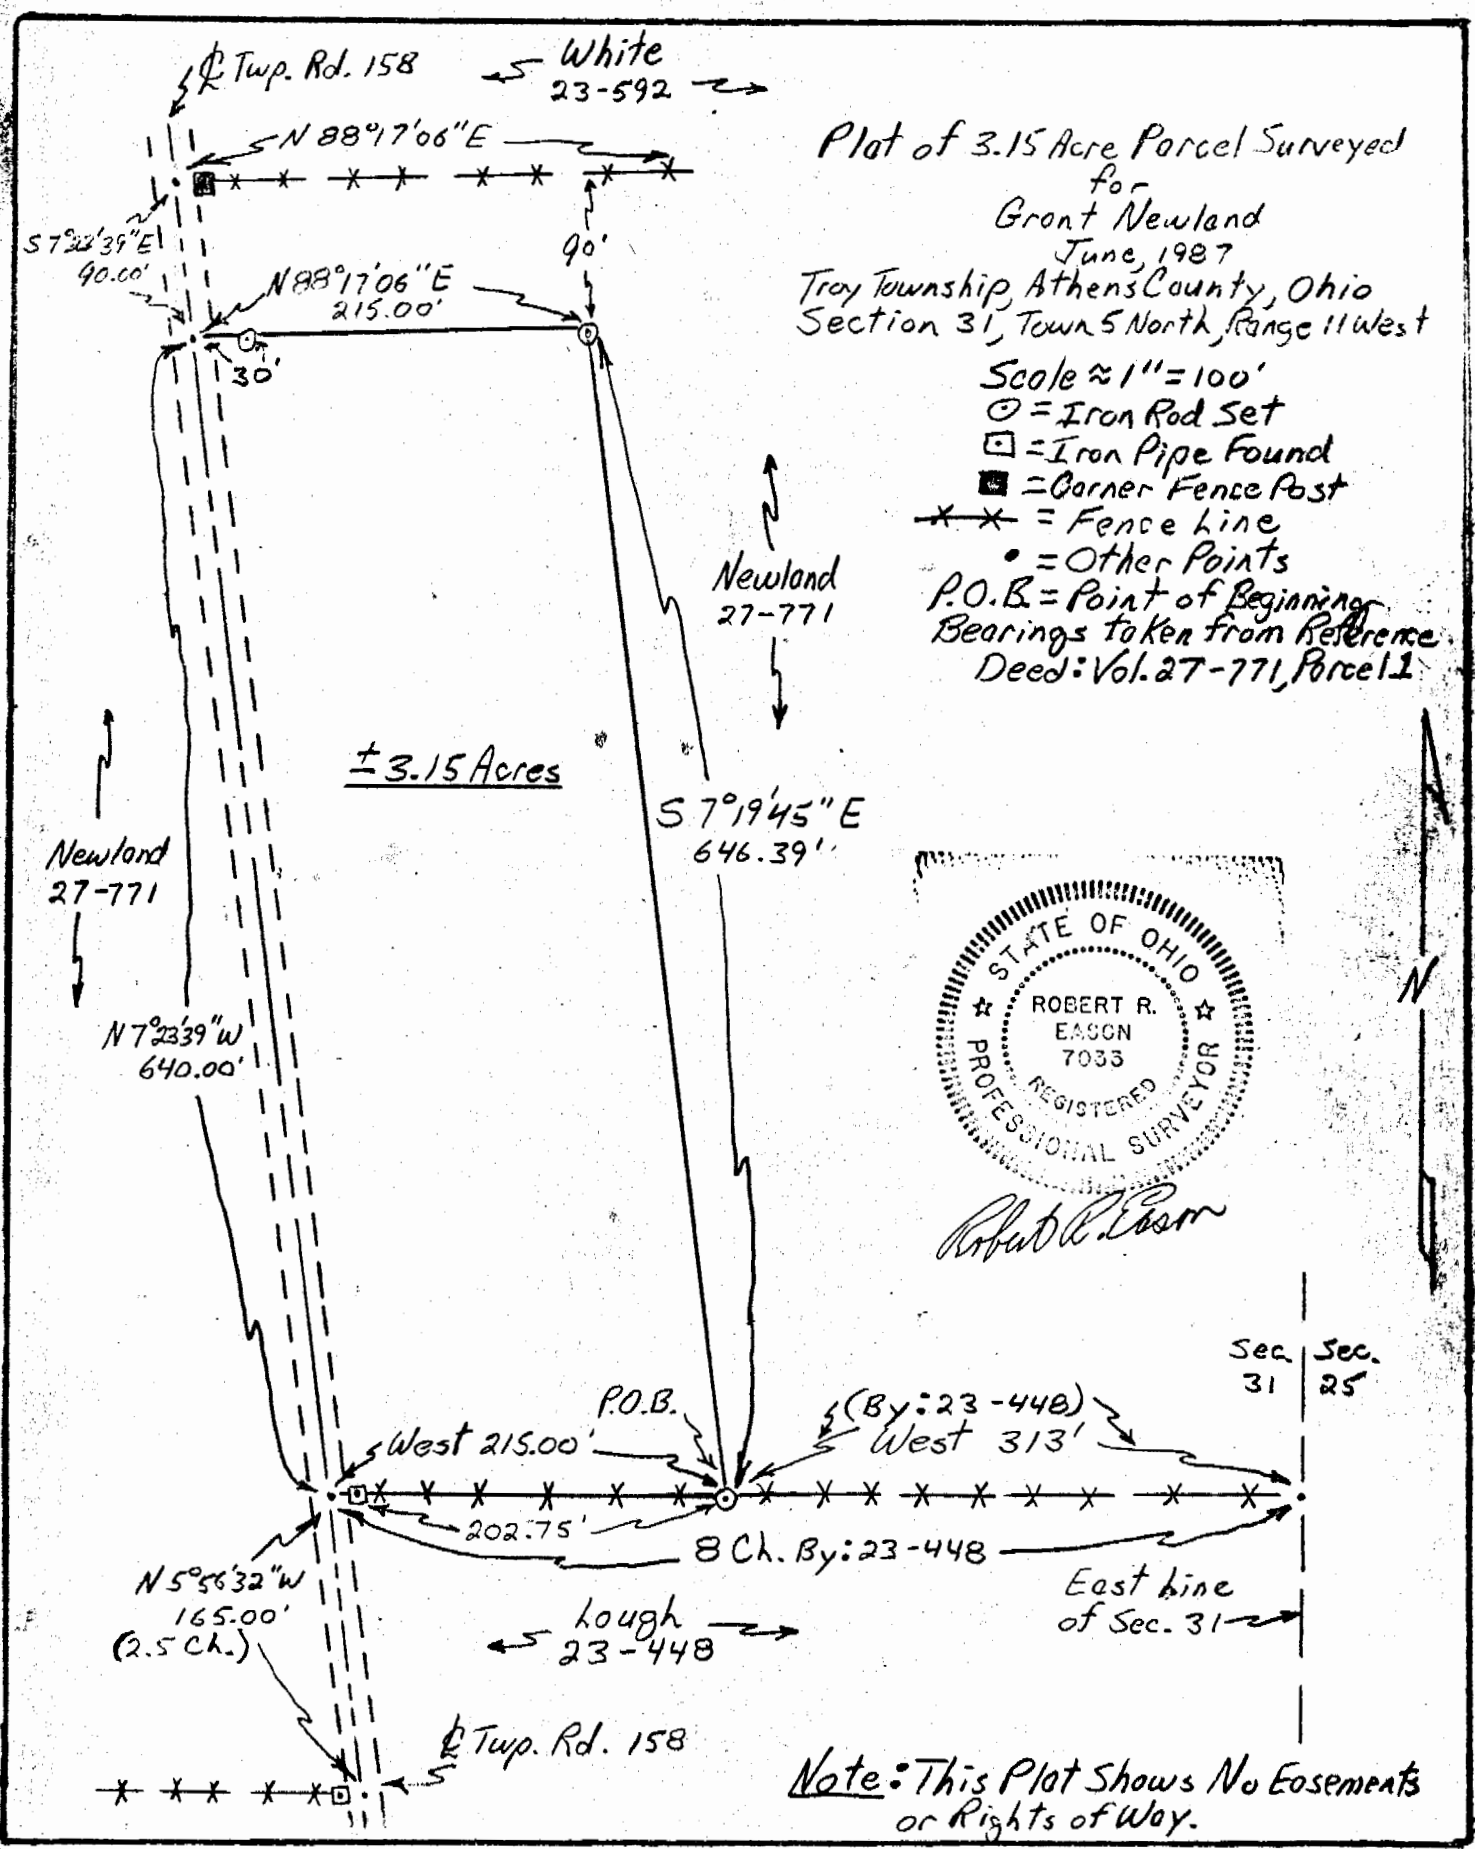 ₵ Twp. Rd. 158
White
23-592
N 88°17'06"E
Plat of 3.15 Acre Parcel Surveyed
for
Grant Newland
June, 1987
Troy Township, Athens County, Ohio
Section 31, Town 5 North, Range 11 West
Scale ≈ 1"=100'
⊙ = Iron Rod Set
⊡ = Iron Pipe Found
■ = Corner Fence Post
-x-x- = Fence Line
• = Other Points
P.O.B. = Point of Beginning
Bearings taken from Reference
Deed: Vol. 27-771, Parcel 1
S 7°23'39"E
90.00'
90'
N 88°17'06"E
215.00'
30'
Newland
27-771
± 3.15 Acres
S 7°19'45"E
646.39'
Newland
27-771
N 7°23'39"W
640.00'
STATE OF OHIO
ROBERT R.
EASON
7033
REGISTERED
PROFESSIONAL SURVEYOR
Robert R. Eason
N
Sec. Sec.
31 25
P.O.B.
(By: 23-448)
West 215.00'
West 313'
202.75'
8 Ch. By: 23-448
N 5°56'32"W
165.00'
(2.5 Ch.)
Lough
23-448
East Line
of Sec. 31
₵ Twp. Rd. 158
Note: This Plat Shows No Easements
or Rights of Way.